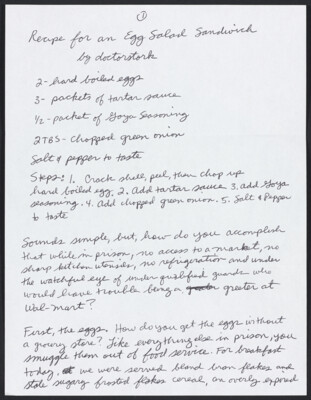 1
Recipe for an Egg Salad Sandwich
by doctorstork
2- hard boiled eggs
3- packets of tartar sauce
1/2- packet of Goya Seasoning
2TBS- chopped green onion
Salt & pepper to taste
Steps: 1. Crack shell, peel, then chop up
hard boiled egg, 2. Add tartar sauce 3. add Goya
seasoning. 4. Add chopped green onion. 5. Salt & Pepper
to taste
Sounds simple, but, how do you accomplish
that while in prison, no access to a market, no
sharp kitchen utensils, no refrigeration and under
the watchful eye of under qualified guards who
would have trouble being a greater at
Wal-mart?
First, the eggs. How do you get the eggs without
a grocery store? Like everything else in prison, you
smuggle them out of food service. For breakfast
today, we were served bland bran flakes and
stale sugary frosted flakes cereal, an overly exposed